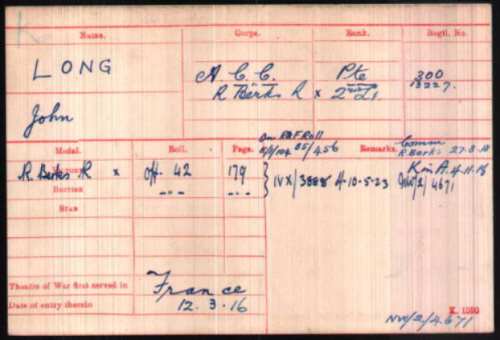 K
Name. Corps. Rank. Regtl. No.
LONG A.C.C. Pte 300
R Berks R x 2nd Lt. 13227.
John
On RAF Roll
Medal. Roll. Page. 85/456 Remarks. Comm
R. Berks 27-8-18
R. Berks. R x Off. 42 179 K in A. 4-11-18
Victory
British -"- -"- } IVX/3888 d-10-5-23 NW/2/4671
Star
Theatre of War first served in France
Date of entry therein 12.3.16
K. 1380
NW/2/4671